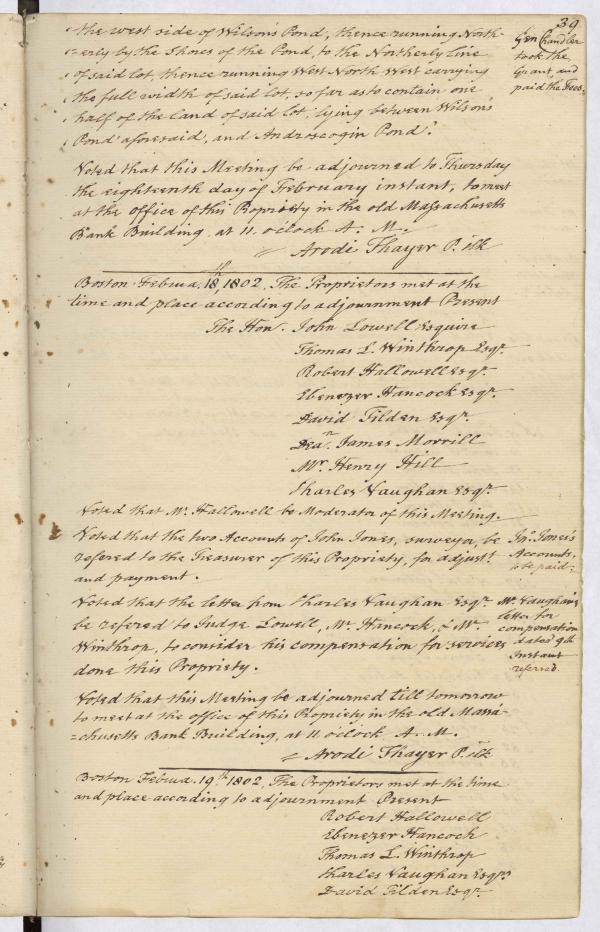 39
the west side of Wilson's Pond, thence running North-
=erly by the Shores of the Pond, to the Northerly line
of said lot, thence running West North West carrying
the full width of said lot, so far as to contain one
half of the land of said lot, lying between Wilson's
Pond aforesaid, and Androscogin Pond."
Gen Chandler
took the
Grant, and
paid the Fees:
Voted that this Meeting be adjourned to Thursday
the eighteenth day of February instant, to meet
at the office of this Propriety in the old Massachusetts
Bank Building at 11. o'clock A. M.
= Arodi Thayer P. Clk
Boston Februa. 18th, 1802, The Proprietors met at the
time and place according to adjournment Present
The Hon. John Lowell Esquire
Thomas L. Winthrop Esqr.
Robert Hallowell Esqr.
Ebenezer Hancock Esqr.
David Tilden Esqr.
Dean. James Morrill
Mr. Henry Hill
Charles Vaughan Esqr.
Voted that Mr. Hallowell be Moderator of this Meeting.
Voted that the two Accounts of John Jones, surveyor, be
refered to the Treasurer of this Propriety, for adjustt
and payment.
Jno. Jones's
Accounts,
to be paid:
Voted that the letter from Charles Vaughan Esqr.
be refered to Judge Lowell, Mr. Hancock, & Mr.
Winthrop, to consider his compensation for services
done this Propriety.
Mr. Vaughan's
letter for
compensation
dated 9th
Instant
referred.
Voted that this Meeting be adjourned till tomorrow
to meet at the office of this Propriety in the old Massa-
=chusetts Bank Building, at 11 o'clock A. M.
= Arodi Thayer P. Clk
Boston Februa. 19.th 1802, The Proprietors met at the time
and place according to adjournment Present
Robert Hallowell
Ebenezer Hancock
Thomas L. Winthrop
Charles Vaughan Esqrs
David Tilden Esqr.